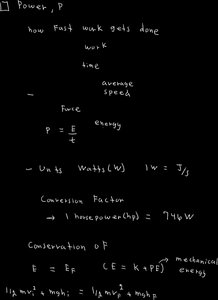 Power, P
how Fast work gets done
work
time
average
speed
Force
energy
P = E/t
- Units Watts (W) 1W = J/s
Conversion Factor
→ 1 horsepower (hp) = 746 W
Conservation of
mechanical
E = EF (E = K + PE) energy
1/2 mvi² + mghi = 1/2 mvF² + mghF